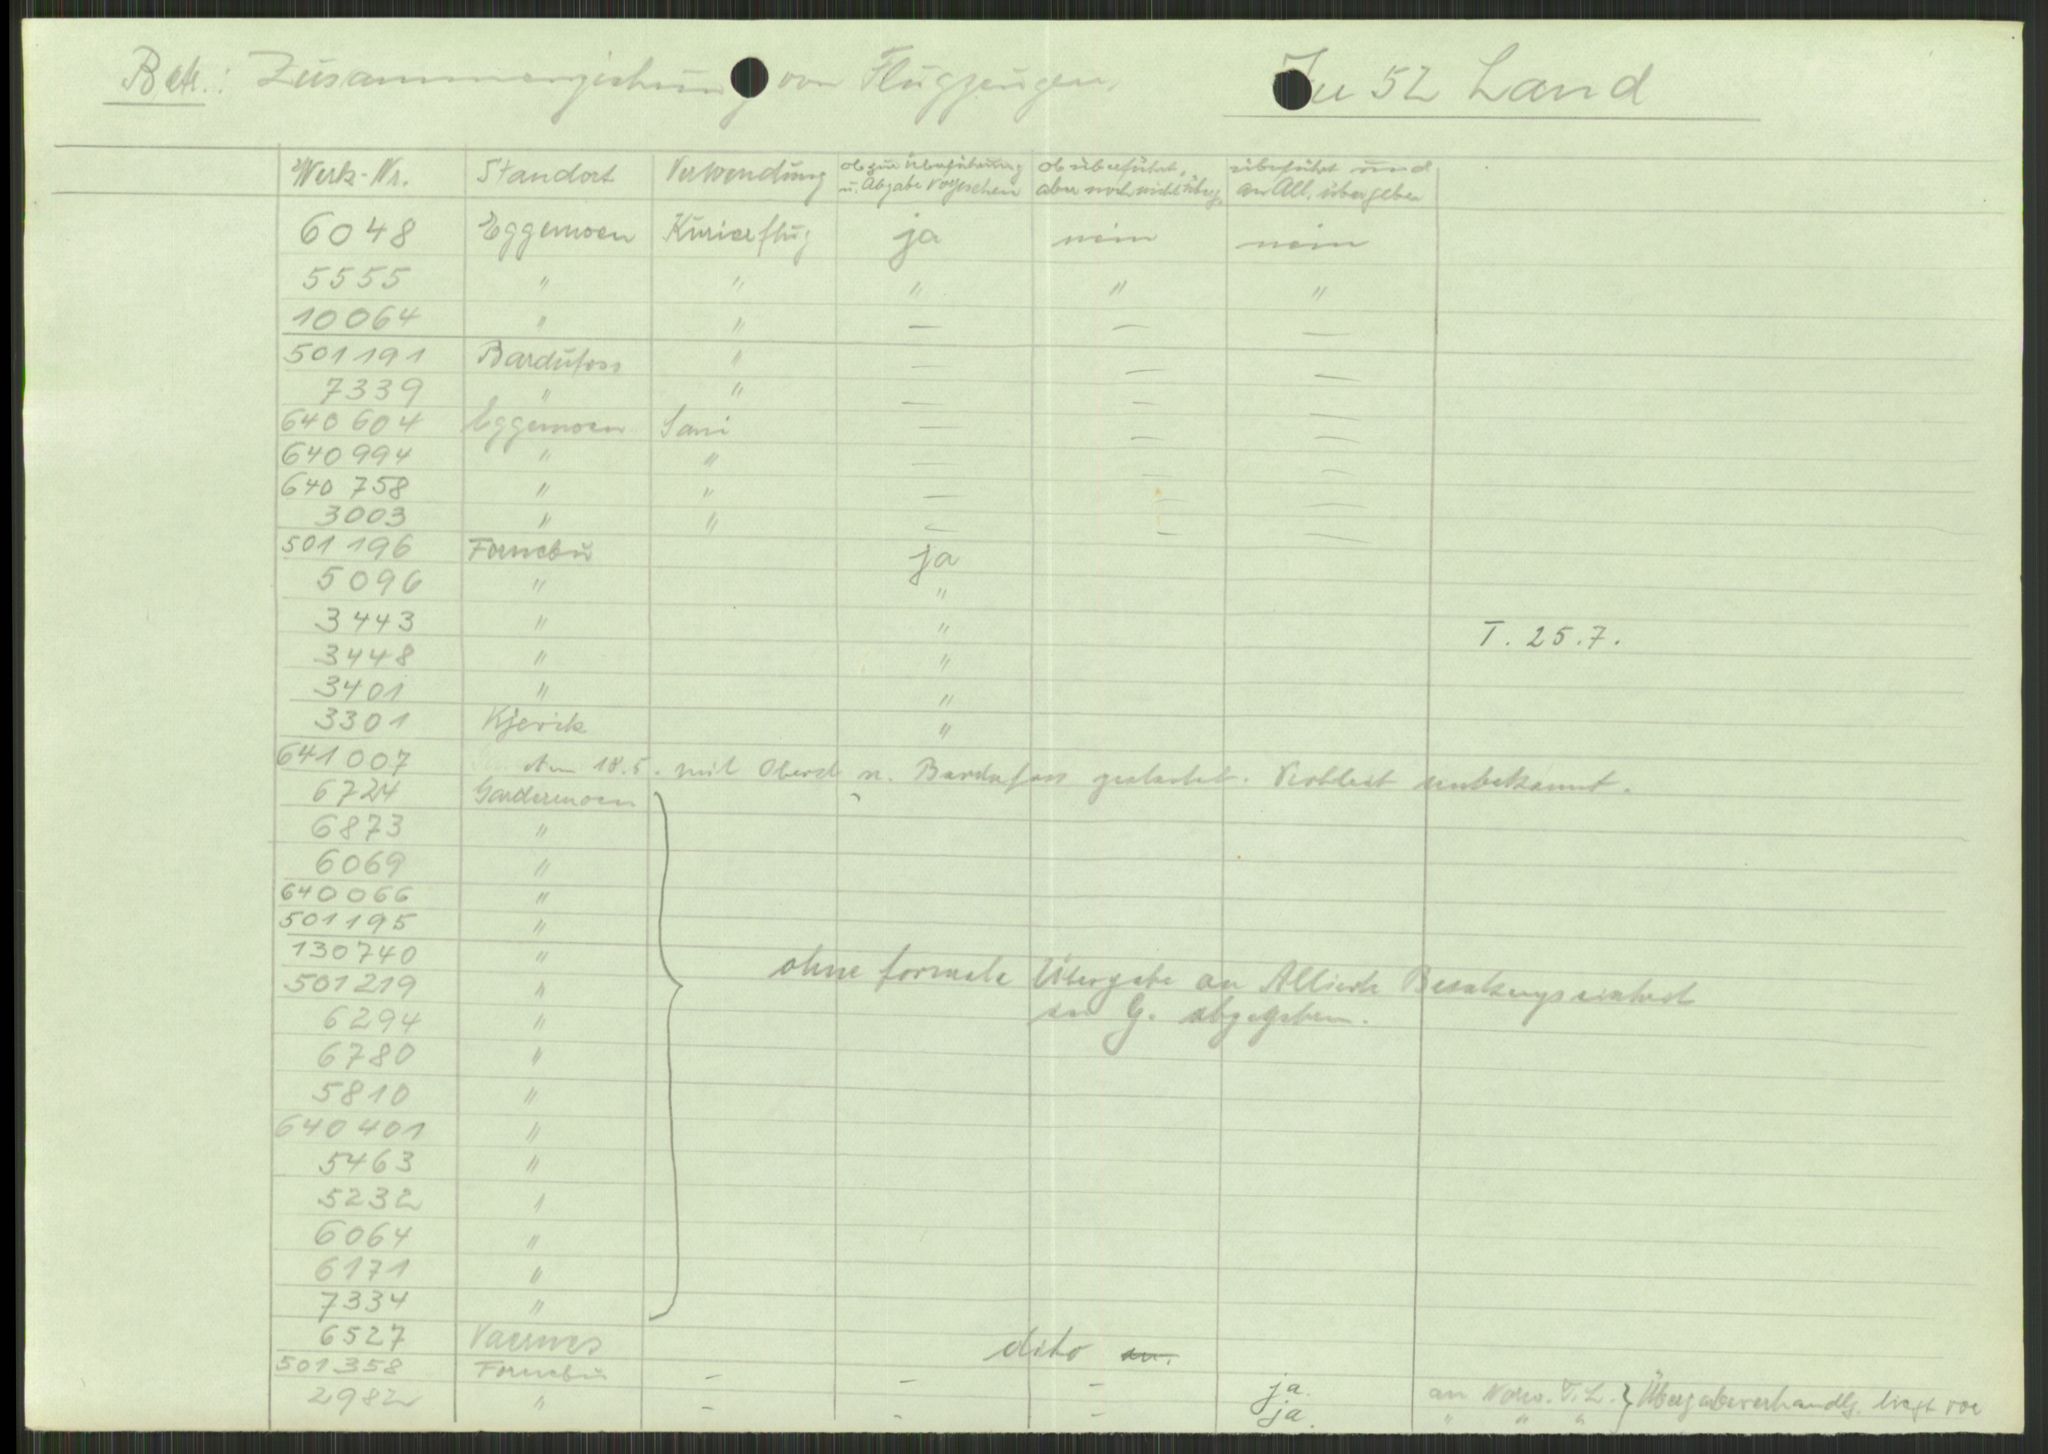 Betr.: Zusammenziehung von Flugzeugen, Ju 52 Land
Werk-Nr. Standort Verwendung ob zur Überführung u. Abgabe vorgesehen ob überführt, aber noch nicht überg. überführt und an All. übergeben
6048 Eggemoen Kurierflug ja nein nein
5555 " " " " "
10064 " " — — —
501191 Bardufoss " — — —
7339 " " — — —
640604 Eggemoen Sani — — —
640994 " " — — —
640758 " " — — —
3003 " " — — —
501196 Fornebu ja
5096 " "
3443 " " T. 25.7.
3448 " "
3401 " "
3301 Kjevik "
641007 Am 18.5. mit Oberst n. Bardufoss gestartet. Verbleib unbekannt.
6724 Gardermoen
6873 "
6069 "
640066 "
501195 "
130740 "
501219 " ohne formale Übergabe an Allierte Besatzungseinheit
6294 " in G. abgegeben.
6780 "
5810 "
640401 "
5463 "
5232 "
6064 "
6171 "
7334 "
6527 Vaernes dito
501358 Fornebu – – – ja. an Norw. T.L. } Übergabeverhandlg. liegt vor
2982 " – – – ja. " " "